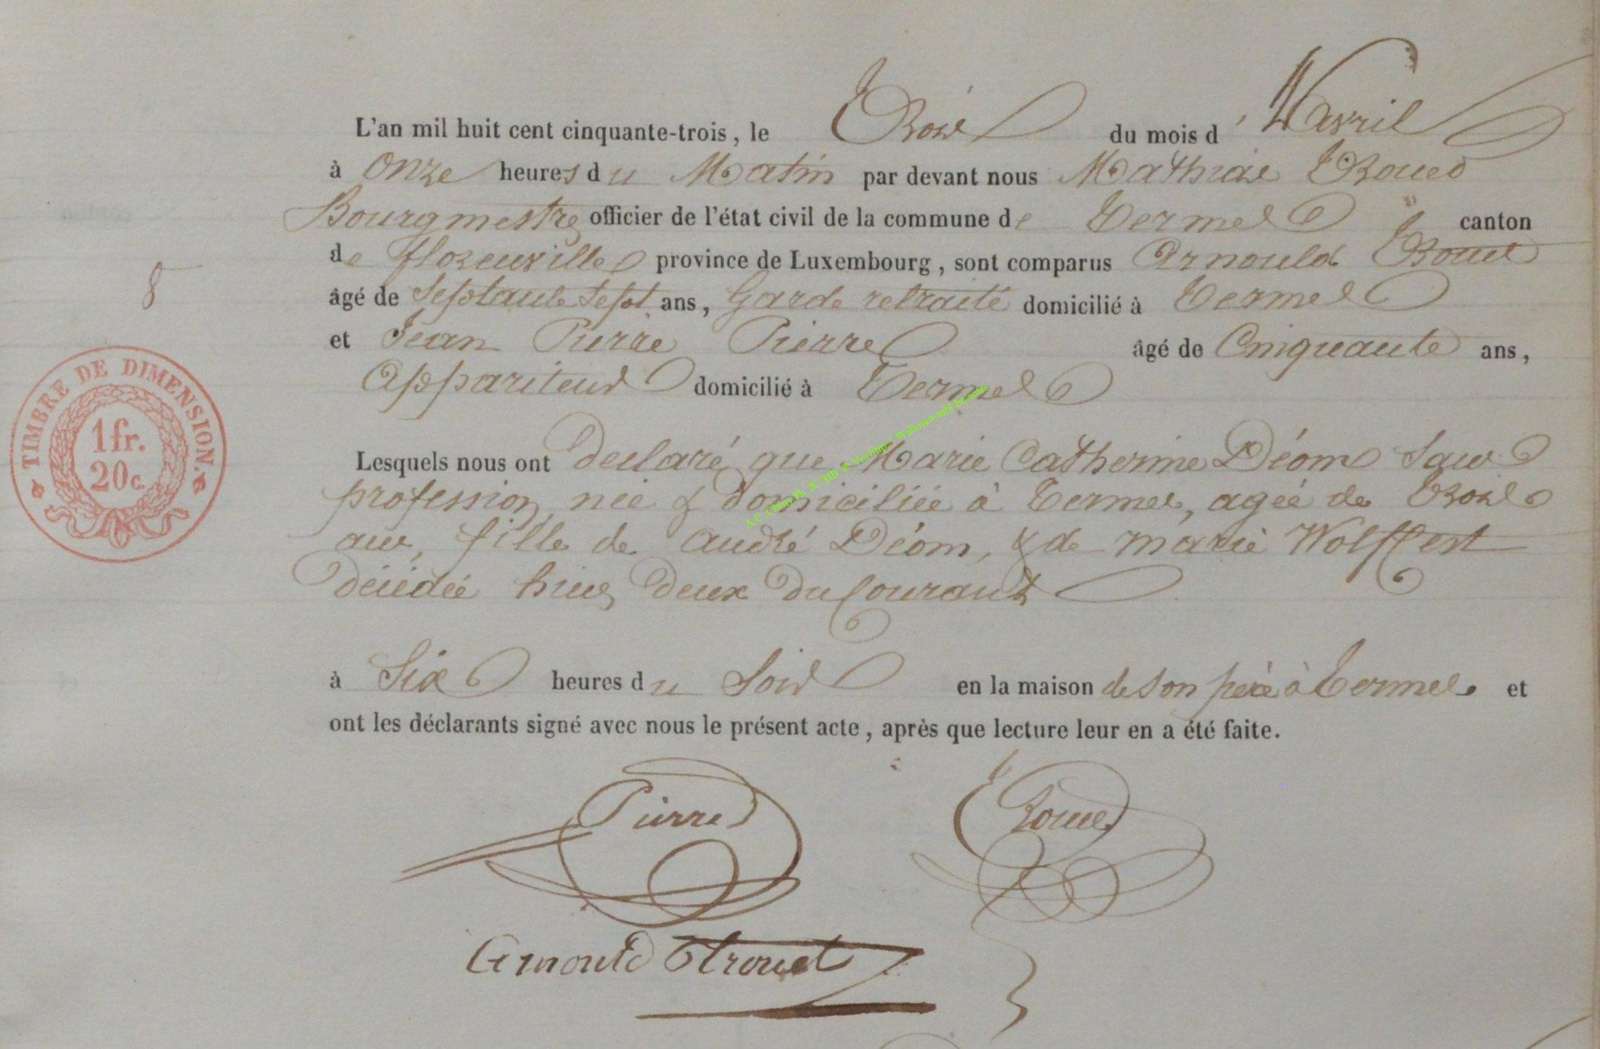 L'an mil huit cent cinquante-trois, le Trois du mois d'avril
à onze heures du Matin par devant nous Mathias Troued
Bourgmestre officier de l'état civil de la commune de Termes canton
de florenville province de Luxembourg, sont comparus Arnould Trouet
âgé de Septante Sept ans, Garde retraité domicilié à Termes
et Jean Pierre Pierre âgé de Cinquante ans,
Appariteur domicilié à Termes
Lesquels nous ont declaré que Marie Catherine Déom Saus
profession, née & domiciliée à Termes, agée de Trois
ans, fille de André Déom, & de marie Wolffert
décédée hier, deux du Courant
8
TIMBRE DE DIMENSION.
1 fr.
20 c.
à Six heures du Soir en la maison de son père à Termes. et
ont les déclarants signé avec nous le présent acte, après que lecture leur en a été faite.
Pierre
Arnould Trouet